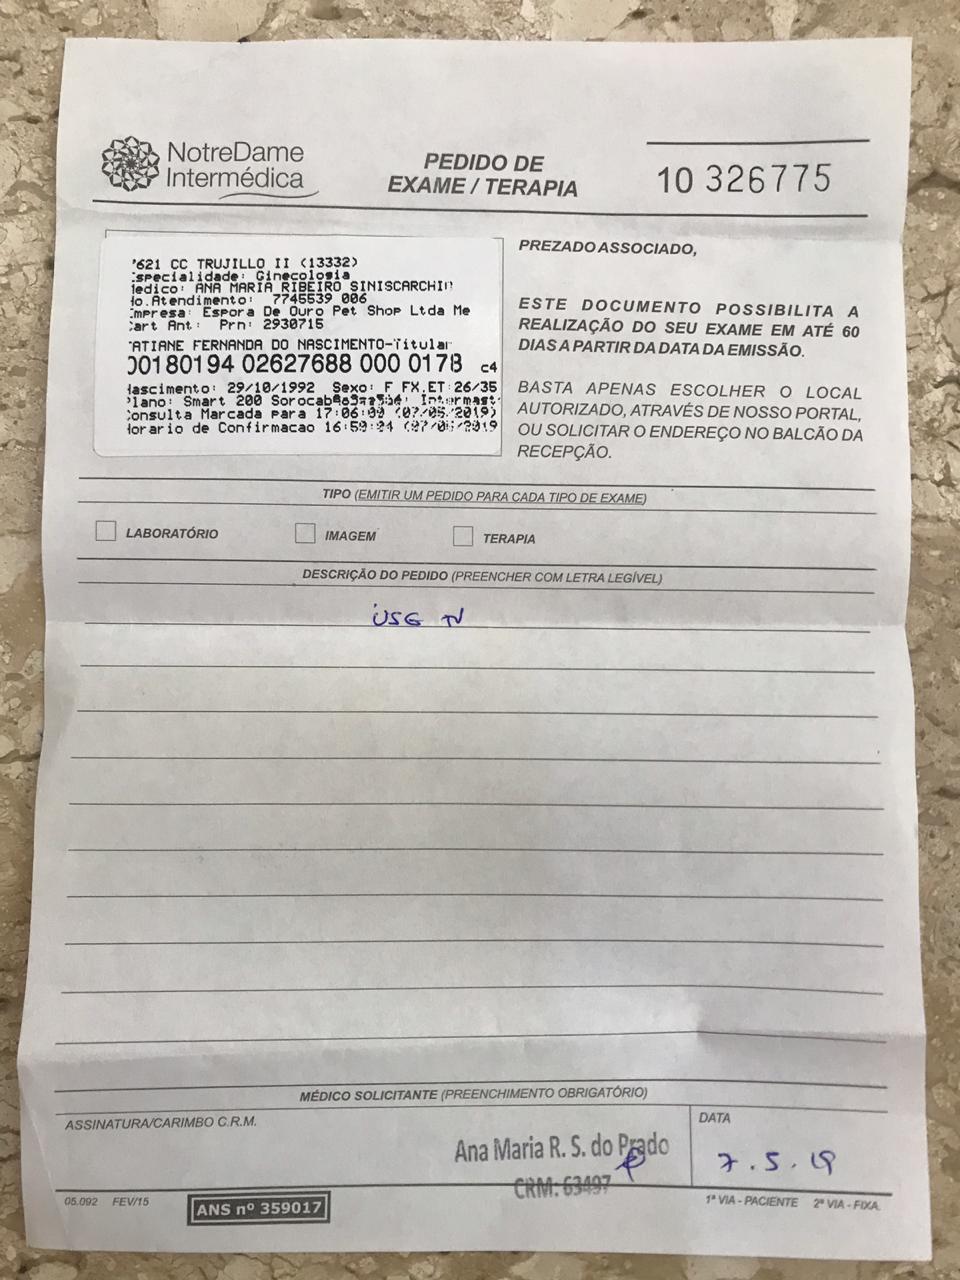 NotreDame
Intermédica
PEDIDO DE
EXAME / TERAPIA
10 326775
'621 CC TRUJILLO II (13332)
Especialidade: Ginecologia
Medico: ANA MARIA RIBEIRO SINISCARCHI
No.Atendimento: 7745539 006
Empresa: Espora De Ouro Pet Shop Ltda Me
Cart Ant: Prn: 2930715
ATIANE FERNANDA DO NASCIMENTO-Titular
00180194 02627688 000 0178 c4
Nascimento: 29/10/1992 Sexo: F FX.ET:26/35
Plano: Smart 200 Intermast
Consulta Marcada para 17:06:00 (07/05/2019)
Horario de Confirmacao 16:59:24 (07/05/2019
PREZADO ASSOCIADO,
ESTE DOCUMENTO POSSIBILITA A
REALIZAÇÃO DO SEU EXAME EM ATÉ 60
DIAS A PARTIR DA DATA DA EMISSÃO.
BASTA APENAS ESCOLHER O LOCAL
AUTORIZADO, ATRAVÉS DE NOSSO PORTAL,
OU SOLICITAR O ENDEREÇO NO BALCÃO DA
RECEPÇÃO.
TIPO (EMITIR UM PEDIDO PARA CADA TIPO DE EXAME)
LABORATÓRIO IMAGEM TERAPIA
DESCRIÇÃO DO PEDIDO (PREENCHER COM LETRA LEGÍVEL)
USG TV
MÉDICO SOLICITANTE (PREENCHIMENTO OBRIGATÓRIO)
ASSINATURA/CARIMBO C.R.M.
Ana Maria R. S. do Prado
CRM: 63497
DATA
7.5.19
05.092 FEV/15
ANS nº 359017
1ª VIA - PACIENTE 2ª VIA - FIXA